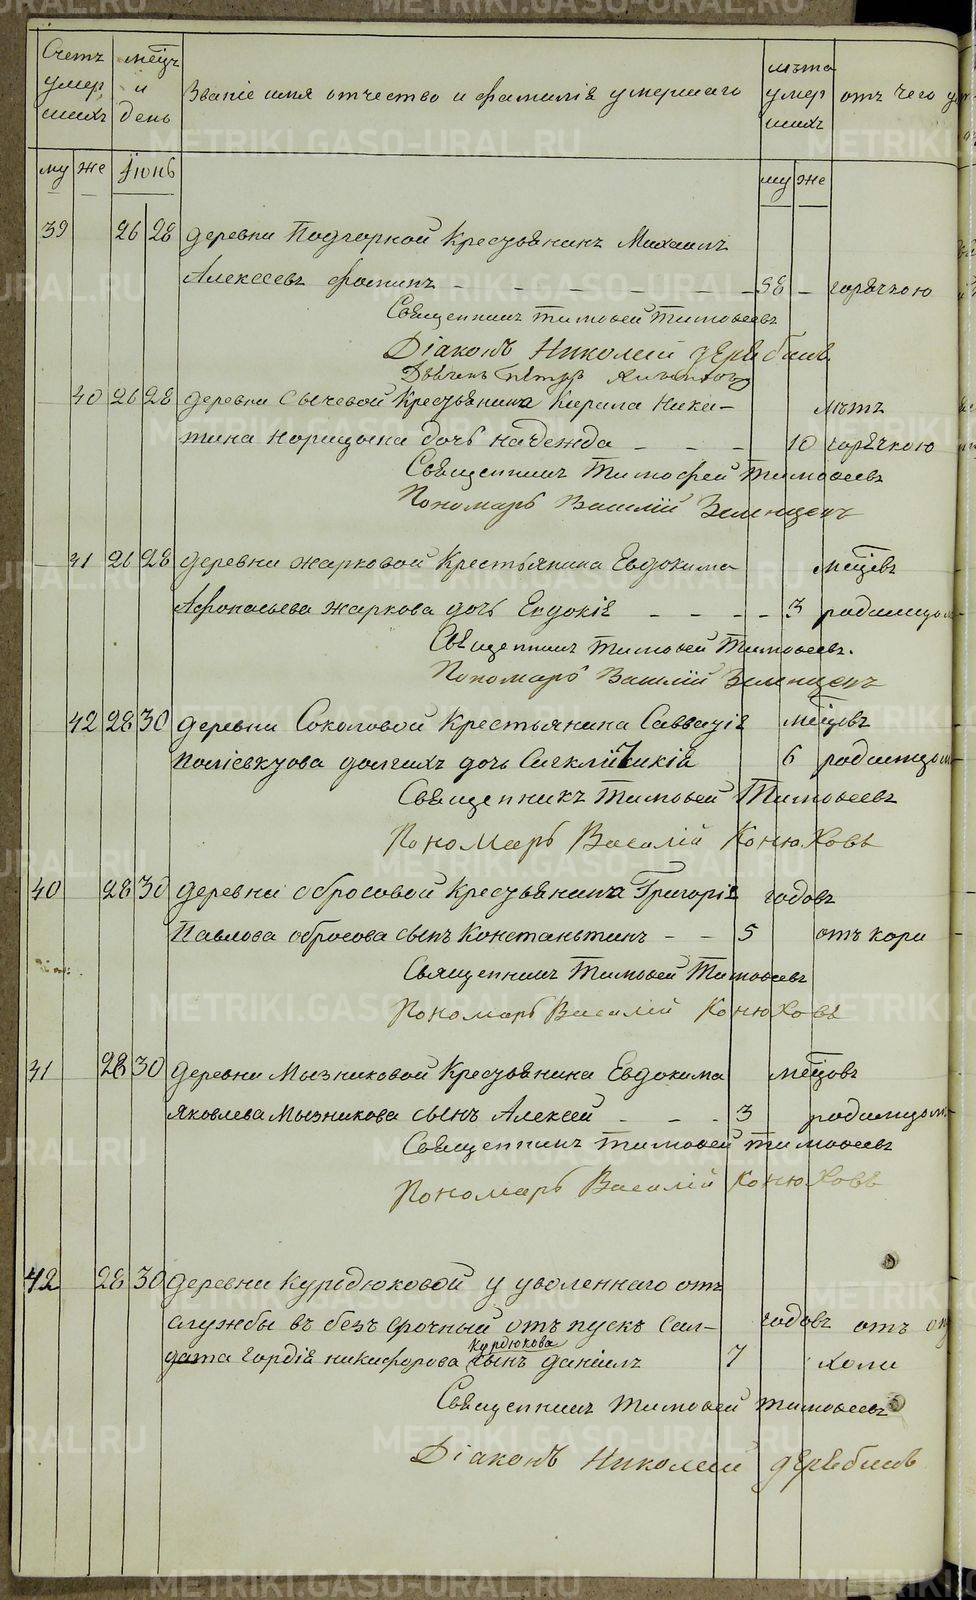 Счетъ умер шихъ
мѣцъ и день
Званіе имя отчество и фамиліѣ умершаго
лѣта умер шихъ
отъ чего у
му же Іюнь му же
39 26 28 деревни Подгорной Крестьянинъ Михаилъ
Алексеевъ Фоминъ 38 горячкою
Священникъ Тимофей Тимофеевъ
Діаконъ Николай Дерябинъ
Дьячекъ Петръ
40 26 28 деревни Сычевой Крестьянина Кирила Ники-
лѣтъ
тина Норицына дочь Надежда 10 горячкою
Священникъ Тимофей Тимофеевъ
Пономарь Василій Зеленцовъ
41 26 28 деревни Жарковой Крестьянина Евдокима мѣцевъ
Афонасьева Жаркова дочь Евдокіѣ 3 родимцом
Священникъ Тимофей Тимофеевъ.
Пономарь Василій Зеленцовъ
42 28 30 деревни Соколовой Крестьянина Савватіѣ мѣцовъ
Полієвктова Долгихъ дочь Сигклитикіѣ 6 родимцом
Священникъ Тимофей Тимофеевъ
Пономарь Василій Конюховъ
40 28 30 деревни Обросовой Крестьянина Григоріѣ годовъ
Павлова Обросова сынъ Константинъ 5 отъ кори
Священникъ Тимофей Тимофеевъ
Пономарь Василій Конюховъ
41 28 30 деревни Мызниковой Крестьянина Евдокима мѣцовъ
Яковлева Мызникова сынъ Алексей 3 родимцом
Священникъ Тимофей Тимофеевъ
Пономарь Василій Конюховъ
42 28 30 деревни Курдюковой у уволеннаго отъ
службы въ безъ срочный отъ пускъ Сал- годовъ отъ оп
Курдюкова
дата Гордіѣ Никифорова сынъ Даніилъ 7 холи
Священникъ Тимофей Тимофеевъ
Діаконъ Николай Дерябинъ
METRIKI.GASO-URAL.RU